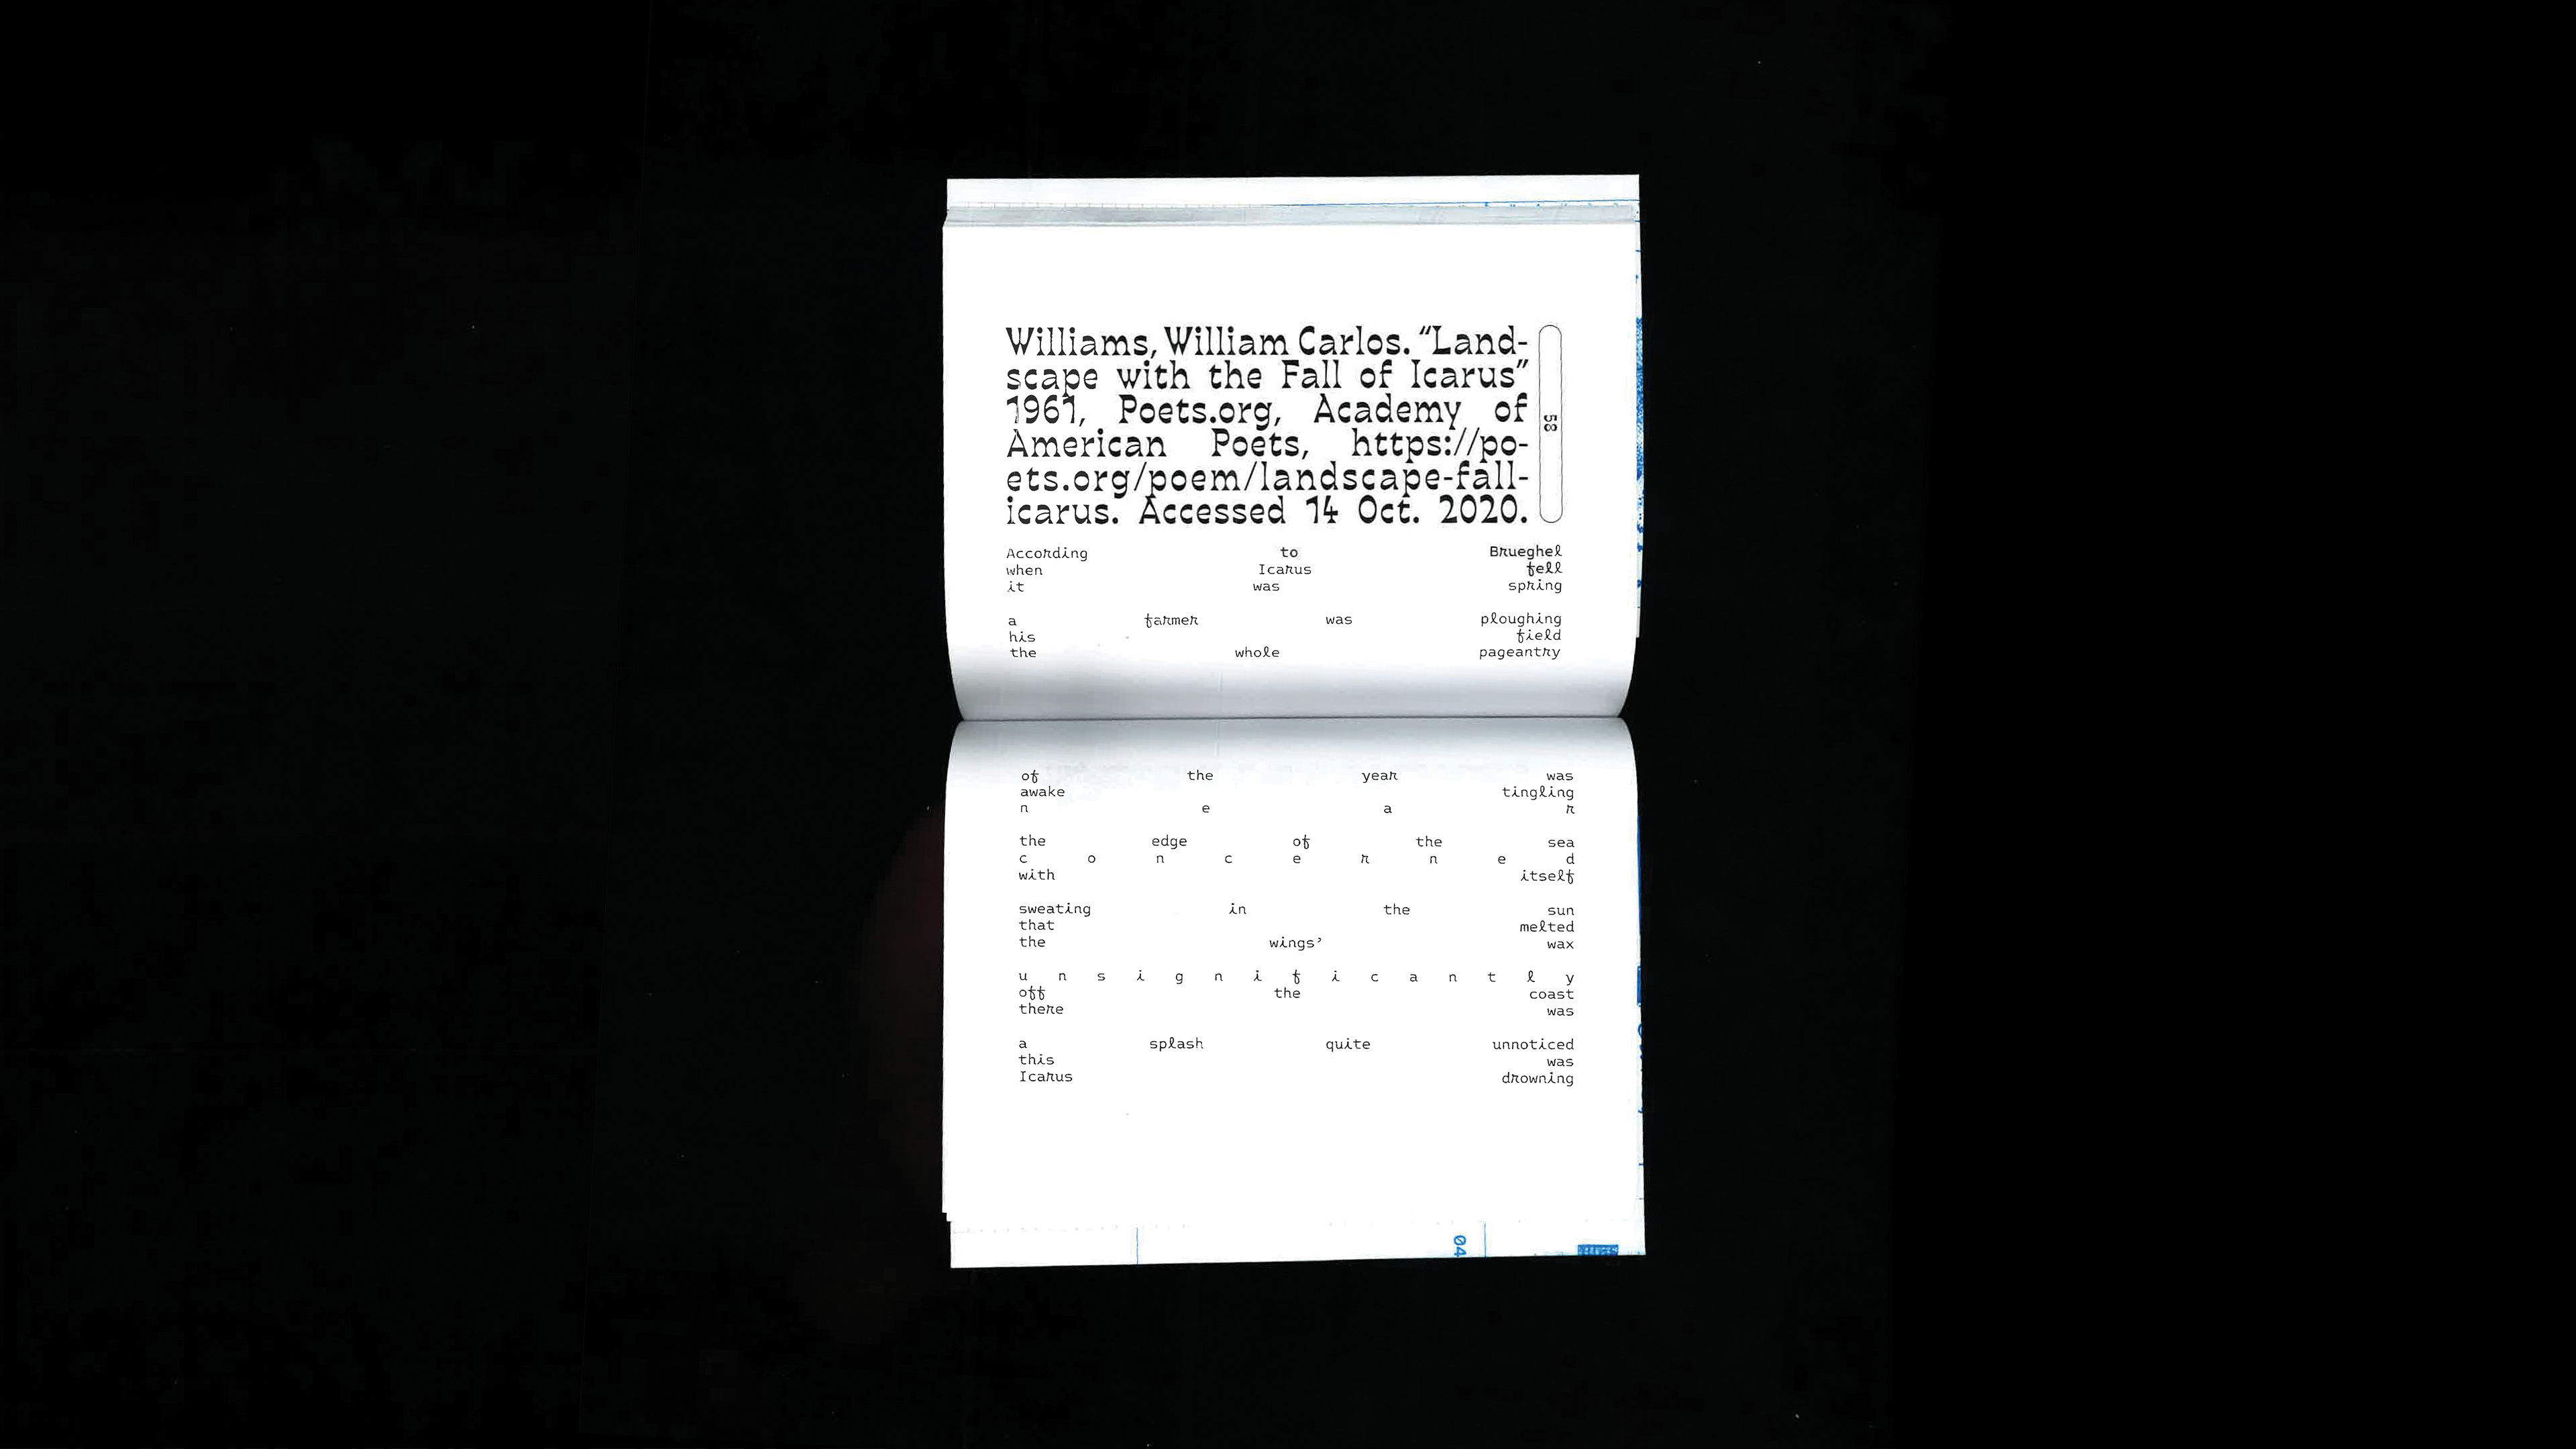 Williams, William Carlos. “Land-
scape with the Fall of Icarus”
1961, Poets.org, Academy of
American Poets, https://po-
ets.org/poem/landscape-fall-
icarus. Accessed 14 Oct. 2020.
58
According to Brueghel
when Icarus fell
it was spring
a farmer was ploughing
his field
the whole pageantry
of the year was
awake tingling
n e a r
the edge of the sea
c o n c e r n e d
with itself
sweating in the sun
that melted
the wings’ wax
u n s i g n i f i c a n t l y
off the coast
there was
a splash quite unnoticed
this was
Icarus drowning
04